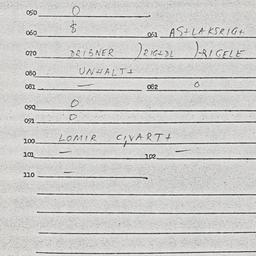 050 O
060 $ 061 AS+LAKSRIG+
070 DRIBNER )RIG+DL )-RIGELE
080 UNHALT+
081 — 082 O
090 O
091 O
100 LOMIR CIVART+
101 — 102 —
110 —